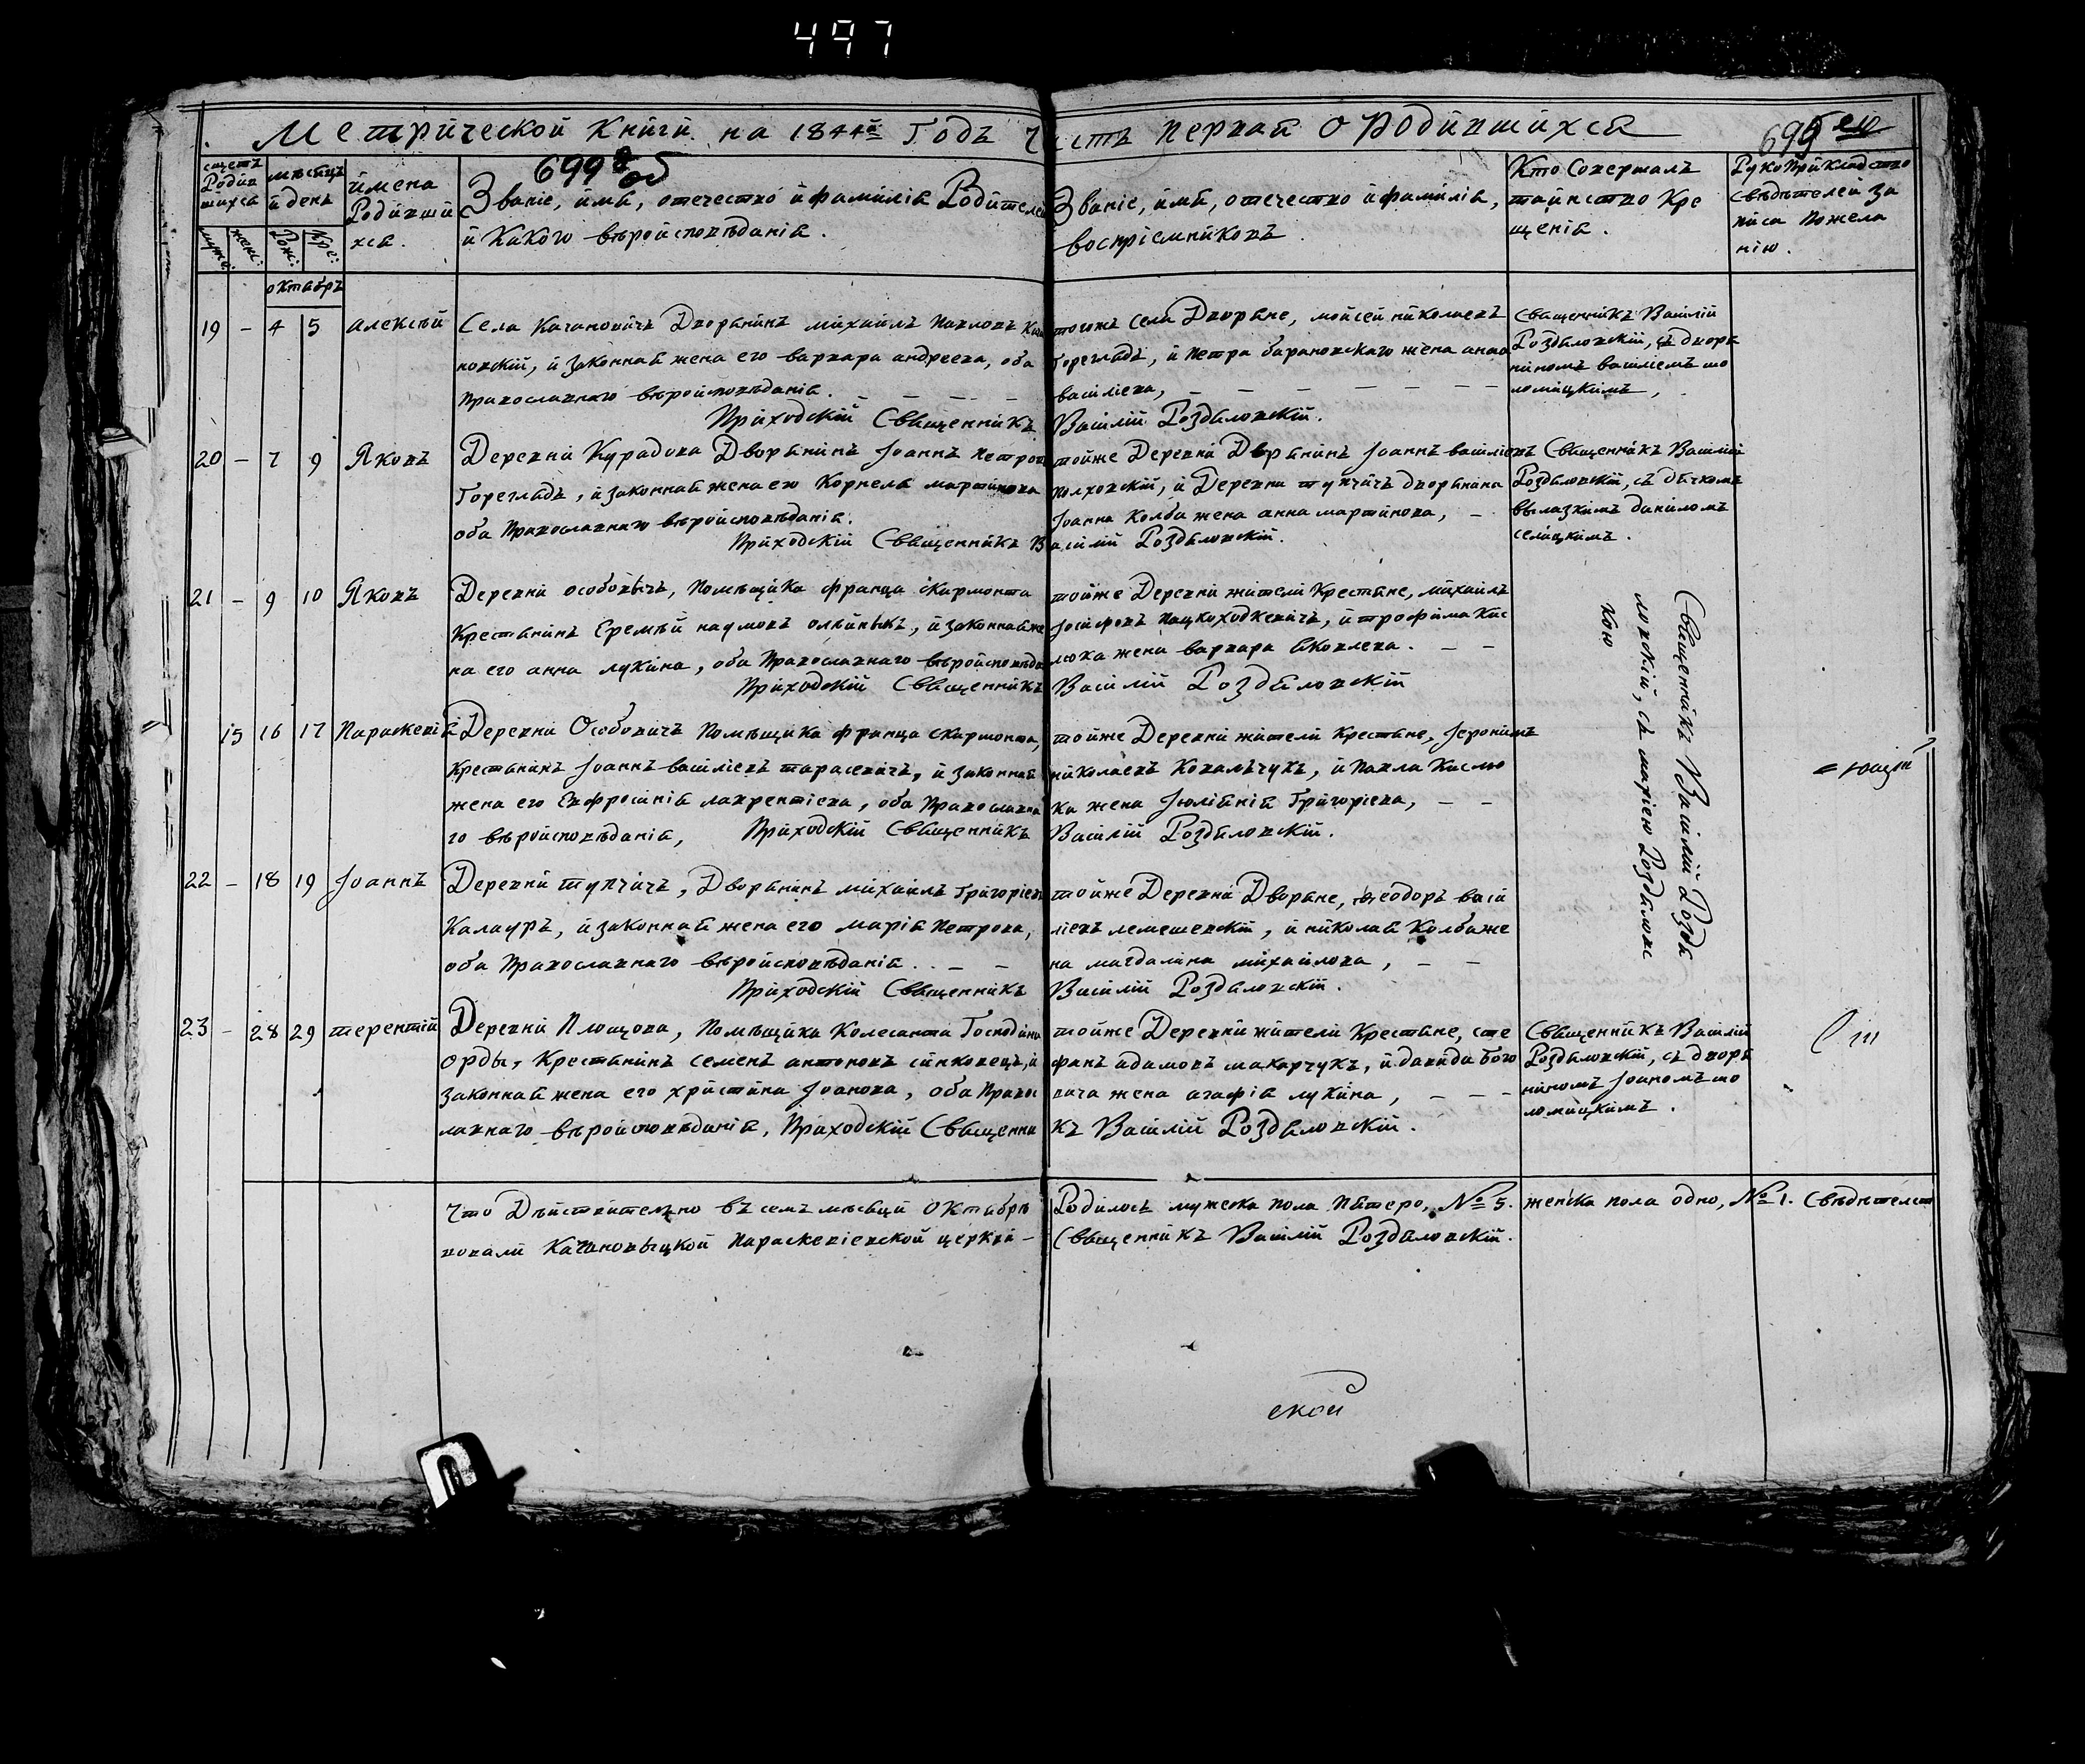 497
Метрической книги на 1844й Годъ Часть первая о Родившихся
699 об
699
счетъ Родив шихся
мужс: женс:
мѣсяцъ и день
Рож: Кре:
имена Родивши хся.
Званіе, имя, отечество и фамилія Родителей
и Какого вѣроисповѣданія.
Званіе, имя, отечество и фамилія,
воспріемниковъ.
Кто Совершалъ
таинство Кре
щенія.
Рукоприкладство
свѣдѣтелей за
писа пожела
нію.
октябрь
19 – 4 5 Алексѣй
Села Качановичъ Дворянинъ михаилъ Павловъ Кача
новскій, и законная жена его варвара андреева, оба
православнаго вѣроисповѣданія. – – – –
Приходскій Священникъ
тогожъ села Дворяне, мойсей николаевъ
Гореглядъ, и петра барановскаго жена анна
васіліева, – – – – – – –
Василій Роздяловскій.
Священникъ Василій
Роздяловскій, съ дворя
ниномъ васіліемъ шо
ломицкимъ,
20 – 7 9 Яковъ
Деревни Курадова Дворянинъ Іоаннъ Петровъ
Гореглядъ, и законная жена его Корнеля мартинова
оба Православнаго вѣроисповѣданія.
Приходскій Священникъ В
тойже Деревни Дврянинъ Іоаннъ васіліевъ
полховскій, и Деревни тупчичъ дворянина
Іоанна Колба жена анна мартинова, –
асилій Роздяловскій.
Священникъ Василій
Роздяловскій, съ дячкомъ
вылазкимъ даниломъ
селицкимъ.
21 – 9 10 Яковъ
Деревни особовичъ, Помѣщика франца скирмонта
Крестянинъ Еремѣй наумовъ олѣйныкъ, и законная же
на его анна лукина, оба Православнаго вѣроисповѣда
Приходскій Священникъ
тойже Деревни жители Крестяне, михаилъ
Іосифовъ Пацкоходкевичъ, и трофима Кис
люка жена варвара яковлева. – –
Василій Роздяловскій
Священникъ Василій Роздя
ловскій, съ маріею Роздяловс
кою
15 16 17 Параскевія
Деревни Особовичъ Помѣщика франца скирмонта,
Крестянинъ Іоаннъ васіліевъ тарасевичъ, и законная
жена его Евфросинія лаврентіева, оба Православна
го вѣроисповѣданія, Приходскій Священникъ
тойже Деревни жители Крестяне, Іеронимъ
николаевъ Ковальчукъ, и Павла Кислю
ка жена Іюліянія Григоріева, – –
Василій Роздяловскій.
22 – 18 19 Іоаннъ
Деревни тупчичъ, Дворянинъ михаилъ Григоріевъ
Калауръ, и законная жена его марія Петрова,
оба Православнаго вѣроисповѣданія. . – –
Приходскій Священникъ
тойже Деревни Дворяне, феодоръ васи
ліевъ лемешевскій, и николая Колба же
на магдалина михайлова, – –
Василій Роздяловскій.
23 – 28 29 терентій
Деревни Площова, Помѣщика Колесанта Господина
Орды, Крестянинъ семенъ антоновъ синковецъ, и
законная жена его христина Іоанова, оба Правос
лавнаго вѣроисповѣданія, Приходскій Священни
тойже Деревни жители Крестяне, сте
фанъ адамовъ макарчукъ, и давида Бого
вича жена агафія лукина, – – –
къ Василій Роздяловскій.
Священникъ Василій
Роздяловскій, съ дворя
ниномъ Іоаномъ шо
ломицкимъ.
что Дѣйствительно въ семъ мѣсяци Октябрѣ Родилось мужеска пола Пятеро, №5. женска пола одно, №1. Свѣдѣтелст
вовали Качановыцкой Параскевіевской церкви – Священникъ Василій Роздяловскій.
ской